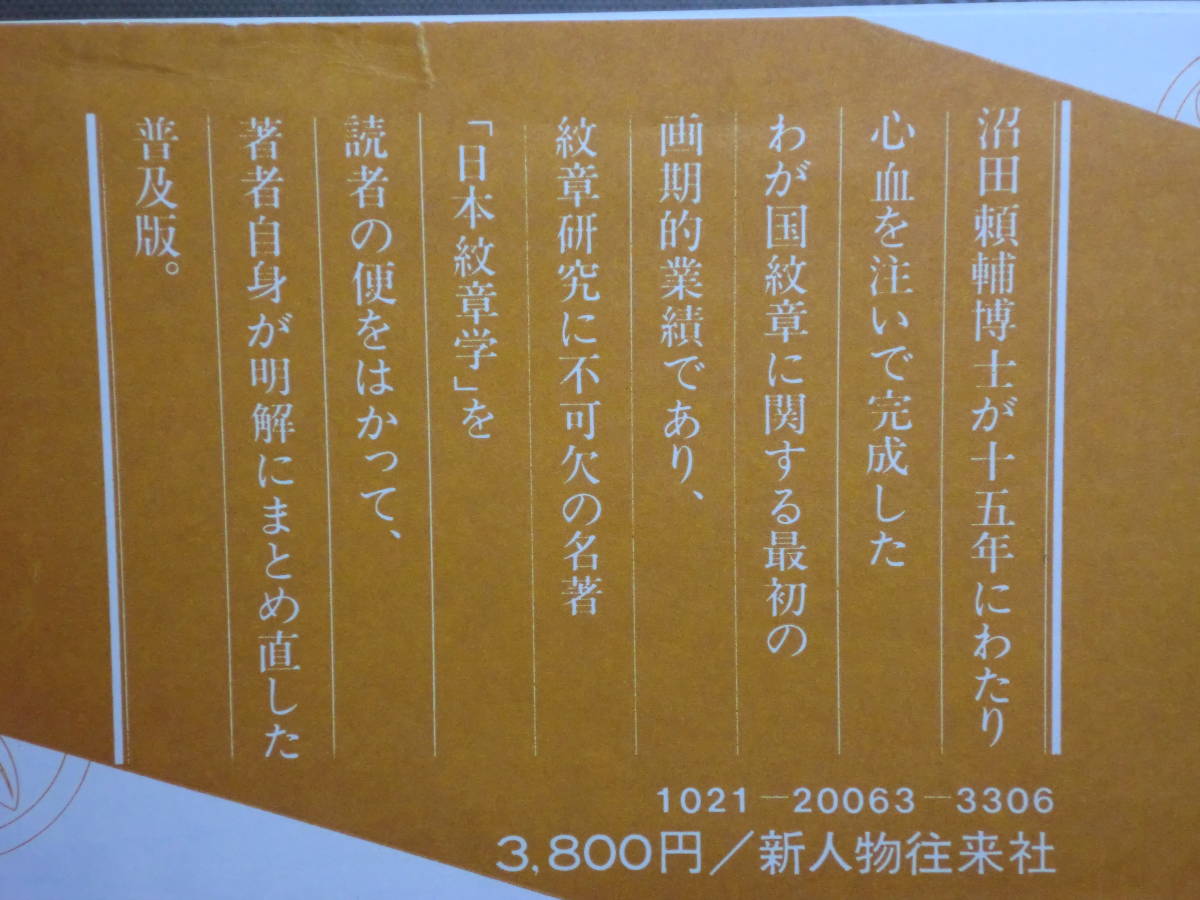 沼田頼輔博士が十五年にわたり
心血を注いで完成した
わが国紋章に関する最初の
画期的業績であり、
紋章研究に不可欠の名著
「日本紋章学」を
読者の便をはかって、
著者自身が明解にまとめ直した
普及版。
1021－20063－3306
3,800円／新人物往来社